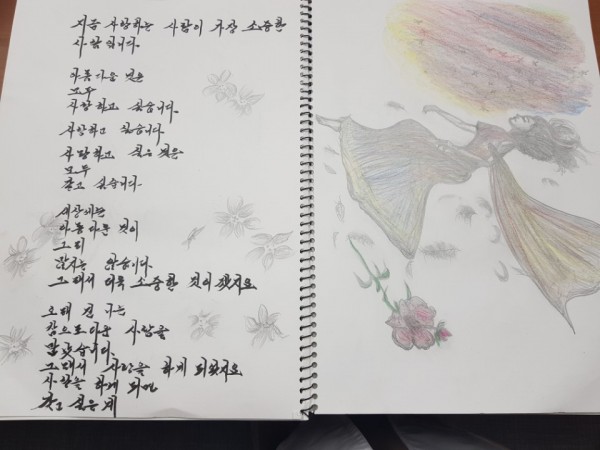 지금 사랑하는 사람이 가장 소중한
사람 입니다.
아름다운 것은
모두
사랑하고 싶습니다.
사랑하고 싶습니다.
사랑하고 싶은 것은
모두
갖고 싶습니다.
세상에는
아름다운 것이
그리
많지는 않습니다.
그래서 더욱 소중한 것이겠지요
오래 전 나는
참으로 아름다운 사람을
만났습니다.
그래서 사랑을 하게 되었지요
사랑을 하게 되면
갖고 싶은 게